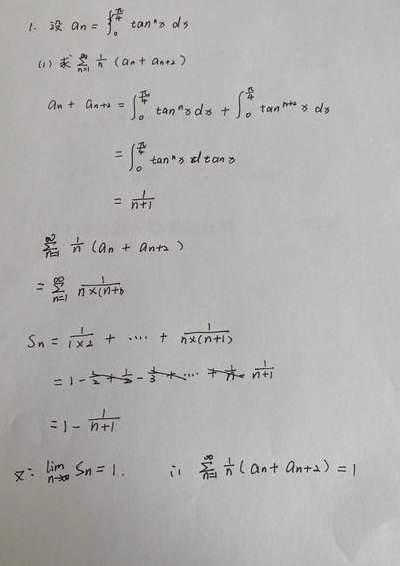 1. 设 an = ∫₀^(π/4) tanⁿx dx
(1) 求 ∑_(n=1)^∞ 1/n (an + an+2)
an + an+2 = ∫₀^(π/4) tanⁿx dx + ∫₀^(π/4) tanⁿ⁺²x dx
= ∫₀^(π/4) tanⁿx d tanx
= 1/(n+1)
∑_(n=1)^∞ 1/n (an + an+2)
= ∑_(n=1)^∞ 1/(n×(n+1)
Sn = 1/(1×2) + ···· + 1/(n×(n+1))
= 1 - 1/2 + 1/2 - 1/3 + ···· + 1/n - 1/(n+1)
= 1 - 1/(n+1)
又∵ lim_(n→∞) Sn = 1. ∴ ∑_(n=1)^∞ 1/n (an + an+2) = 1